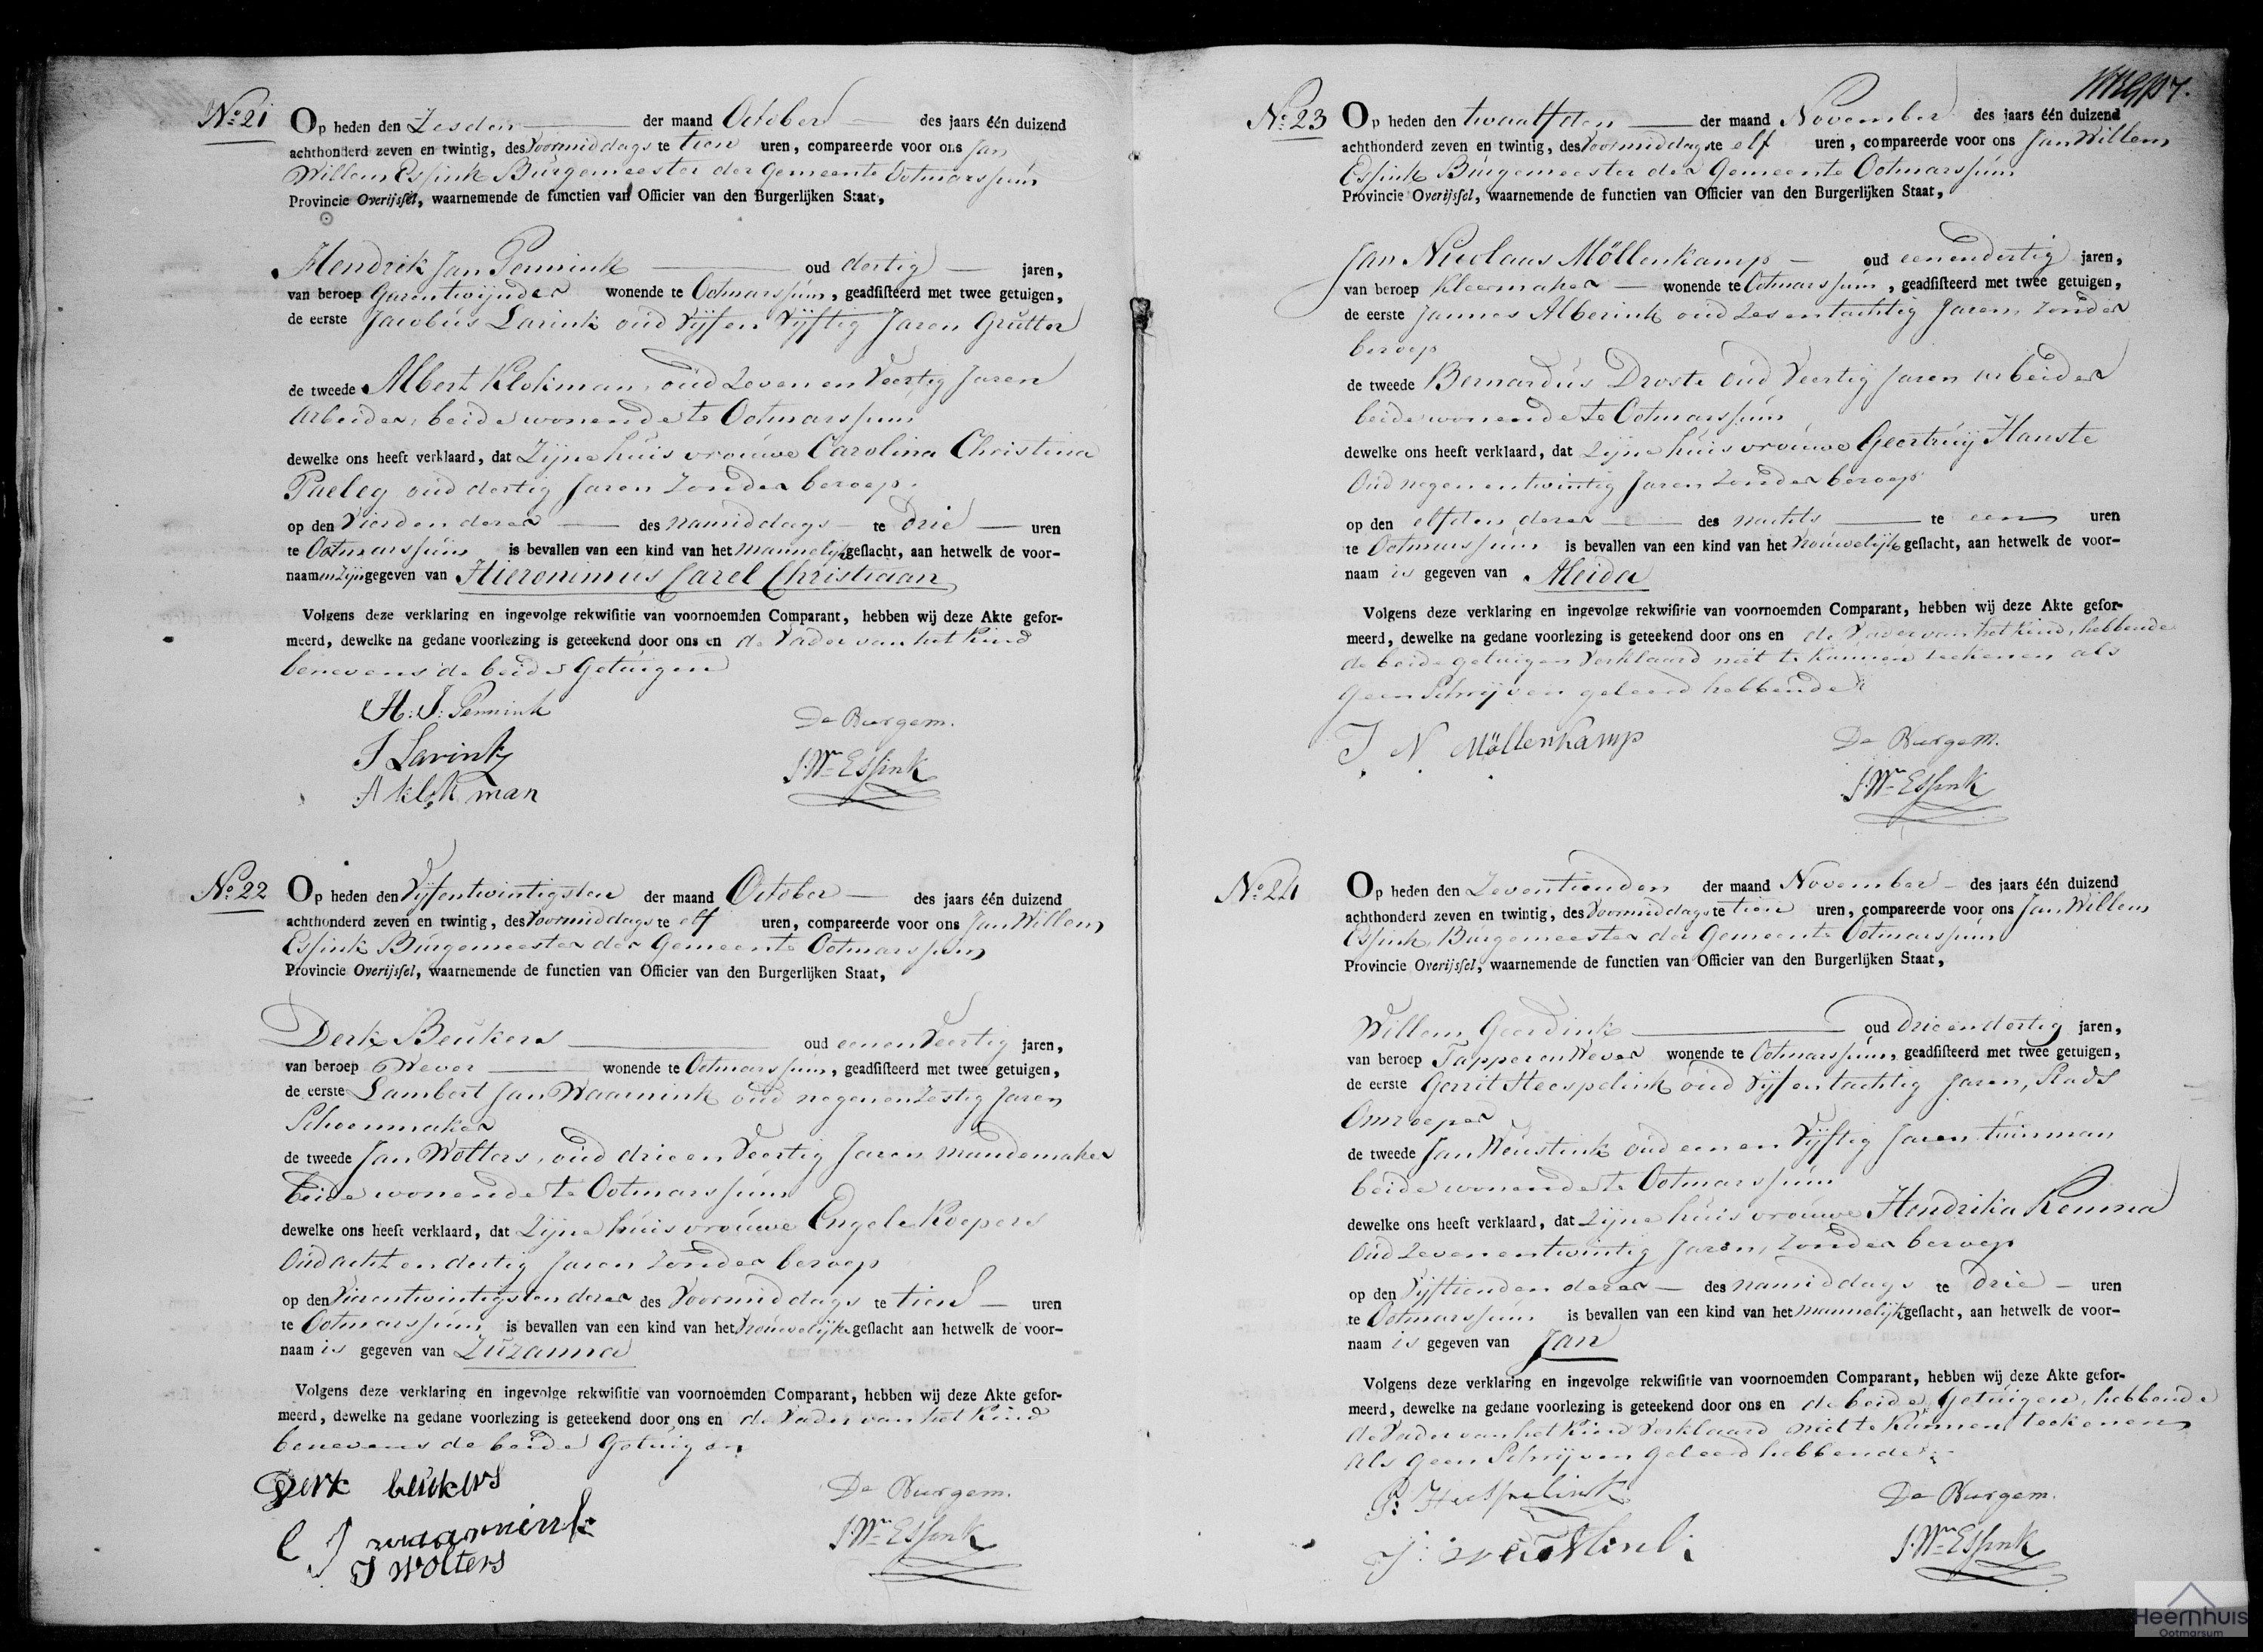 No: 21 Op heden den Zesden der maand October des jaars één duizend
achthonderd zeven en twintig, des Voormiddags te tien uren, compareerde voor ons Jan
Willem Essink Burgemeester der Gemeente Ootmarssum
Provincie Overijssel, waarnemende de functien van Officier van den Burgerlijken Staat,
Hendrik Jan Pennink oud dertig jaren,
van beroep Garentwijnder wonende te Ootmarssum, geadsisteerd met twee getuigen,
de eerste Jacobus Larink oud Vijf en Vijftig Jaren Grutter
de tweede Albert Klokman, oud Zeven en Veertig Jaren
Arbeider, beide wonende te Ootmarssum
dewelke ons heeft verklaard, dat Zijne huisvrouwe Carolina Christina
Paeleg oud dertig Jaren Zonder beroep.
op den Vierden dezer des namiddags te drie uren
te Ootmarssum is bevallen van een kind van het mannelijk geslacht, aan hetwelk de voor-
naamen zijn gegeven van Hieronimus Carel Christiaan
Volgens deze verklaring en ingevolge rekwisitie van voornoemden Comparant, hebben wij deze Akte gefor-
meerd, dewelke na gedane voorlezing is geteekend door ons en de Vader van het Kind
benevens de beide Getuigen
H: J: Pennink
De Burgem.
J Larink
J. Wm Essink
A klokman
No: 22 Op heden den Vijfentwintigsten der maand October des jaars één duizend
achthonderd zeven en twintig, des Voormiddags te elf uren, compareerde voor ons Jan Willem
Essink Burgemeester der Gemeente Ootmarssum
Provincie Overijssel, waarnemende de functien van Officier van den Burgerlijken Staat,
Derk Beukers oud eenenVeertig jaren,
van beroep Wever wonende te Ootmarssum, geadsisteerd met twee getuigen,
de eerste Lambert Jan Waarnink oud negenenzestig Jaren
Schoenmaker
de tweede Jan Wolters, oud drie en Veertig Jaren mandemaker
beide wonende te Ootmarssum
dewelke ons heeft verklaard, dat Zijne huisvrouwe Engele Koepers
Oud acht en dertig Jaren Zonder beroep
op den Vierentwintigsten dezer des Voormiddags te tien uren
te Ootmarssum is bevallen van een kind van het Vrouwelijk geslacht aan hetwelk de voor-
naam is gegeven van Zuzanna
Volgens deze verklaring en ingevolge rekwisitie van voornoemden Comparant, hebben wij deze Akte gefor-
meerd, dewelke na gedane voorlezing is geteekend door ons en de Vader van het Kind
benevens de beide Getuigen
Derk beukers
De Burgem.
L J waarnink
J. Wm Essink
J Wolters
No: 23 Op heden den twaalfden der maand November des jaars één duizend
achthonderd zeven en twintig, des Voormiddags te elf uren, compareerde voor ons Jan Willem
Essink Burgemeester der Gemeente Ootmarssum
Provincie Overijssel, waarnemende de functien van Officier van den Burgerlijken Staat,
Jan Nicolaas Möllenkamp oud eenendertig jaren,
van beroep Kleermaker wonende te Ootmarssum, geadsisteerd met twee getuigen,
de eerste Jannes Alberink oud Zesentachtig Jaren, Zonder
beroep
de tweede Bernardus Droste oud Veertig Jaren arbeider
beide wonende te Ootmarssum
dewelke ons heeft verklaard, dat Zijne huisvrouwe Geertruij Hanste
Oud negenentwintig Jaren Zonder beroep
op den elfden dezer des nachts te een uren
te Ootmarssum is bevallen van een kind van het Vrouwelijk geslacht, aan hetwelk de voor-
naam is gegeven van Aleida
Volgens deze verklaring en ingevolge rekwisitie van voornoemden Comparant, hebben wij deze Akte gefor-
meerd, dewelke na gedane voorlezing is geteekend door ons en de Vader van het Kind, hebbende
de beide getuigen Verklaard niet te kunnen teekenen als
Geen Schrijven geleerd hebbende
J. N. Möllenkamp
De Burgem.
J. Wm Essink
No: 24 Op heden den Zeventienden der maand November des jaars één duizend
achthonderd zeven en twintig, des Voormiddags te tien uren, compareerde voor ons Jan Willem
Essink Burgemeester der Gemeente Ootmarssum
Provincie Overijssel, waarnemende de functien van Officier van den Burgerlijken Staat,
Willem Geerdink oud drieendertig jaren,
van beroep Tapper en Wever wonende te Ootmarssum, geadsisteerd met twee getuigen,
de eerste Gerrit Heespelink oud Vijfentachtig Jaren, Stads
Omroeper
de tweede Jan Weustink oud een en Vijftig Jaren tuinman
beide wonende te Ootmarssum
dewelke ons heeft verklaard, dat Zijne huisvrouwe Hendrika Kenna
Oud Zevenentwintig Jaren, Zonder beroep
op den Vijftienden dezer des namiddags te drie uren
te Ootmarssum is bevallen van een kind van het mannelijk geslacht, aan hetwelk de voor-
naam is gegeven van Jan
Volgens deze verklaring en ingevolge rekwisitie van voornoemden Comparant, hebben wij deze Akte gefor-
meerd, dewelke na gedane voorlezing is geteekend door ons en de beide Getuigen, hebbende
de Vader van het Kind Verklaard niet te Kunnen teekenen
Als geen Schrijven Geleerd hebbende
G: Heespelink
De Burgem.
J: weustink
J. Wm Essink
Heernhuis
Ootmarsum